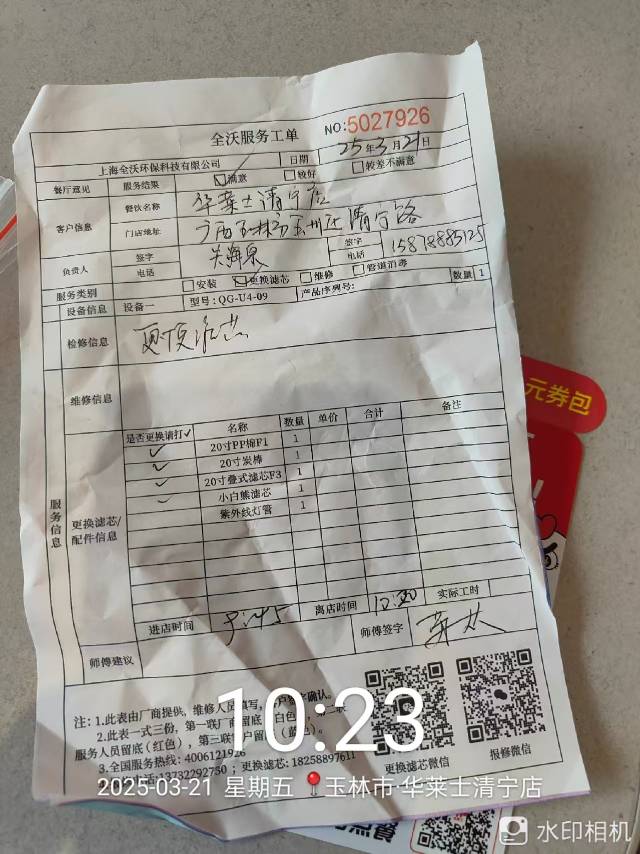 全沃服务工单
NO:5027926
上海全沃环保科技有限公司 日期 25年3月21日
餐厅意见 服务结果 满意 较好 较差不满意
客户信息 餐饮名称 华莱士清宁店
门店地址 广西玉林市玉州区清宁路
负责人 签字 签字
电话 电话 15878885125
服务类别 安装 更换滤芯 维修 管道消毒
设备信息 设备一 型号:QG-U4-09 产品序列号: 数量 1
检修信息
维修信息
服务信息
更换滤芯/配件信息
是否更换请打✓ 名称 数量 单价 合计 备注
✓ 20寸PP棉F1 1
✓ 20寸炭棒 1
✓ 20寸叠式滤芯F3 1
✓ 小白熊滤芯 1
紫外线灯管 1
进店时间 离店时间 实际工时
师傅建议 师傅签字
注:1.此表由厂商提供,维修人员填写,客户签字确认。
2.此表一式三份,第一联厂商留底(白色),第二联
服务人员留底(红色),第三联客户留底(蓝色)。
3.全国服务热线:4006121926
电话:13732292730;更换滤芯:18258897611
更换滤芯微信
报修微信
元券包
10:23
2025-03-21 星期五 玉林市·华莱士清宁店
点餐
水印相机